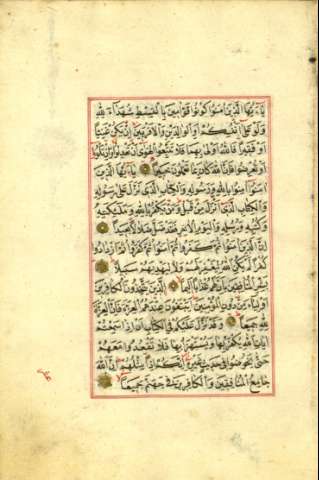 يا ايها الذين امنوا كونوا قوامين بالقسط شهداء لله
ولو على انفسكم او الوالدين والاقربين ان يكن غنيا
او فقيرا فالله اولى بهما فلا تتبعوا الهوى ان تعدلوا وان تلووا
او تعرضوا فان الله كان بما تعملون خبيرا يا ايها الذين
امنوا امنوا بالله ورسوله والكتاب الذى نزل على رسوله
والكتاب الذى انزل من قبل ومن يكفر بالله وملئكته
وكتبه ورسله واليوم الاخر فقد ضل ضلالا بعيدا
ان الذين امنوا ثم كفروا ثم امنوا ثم كفروا ثم ازدادوا
كفرا لم يكن الله ليغفر لهم ولا ليهديهم سبيلا
بشر المنافقين بان لهم عذابا اليما الذين يتخذون الكافرين
اولياء من دون المؤمنين ايبتغون عندهم العزة فان العزة
لله جميعا وقد نزل عليكم فى الكتاب ان اذا سمعتم
ايات الله يكفر بها ويستهزا بها فلا تقعدوا معهم
حتى يخوضوا فى حديث غيره انكم اذا مثلهم ان الله
جامع المنافقين والكافرين فى جهنم جميعا